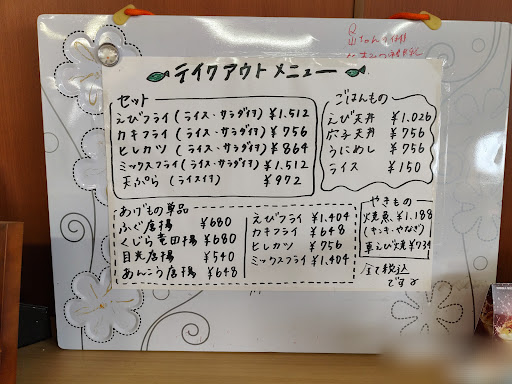 テイクアウトメニュー
セット
えびフライ(ライス・サラダ付) ¥1.512
カキフライ(ライス・サラダ付) ¥756
ヒレカツ(ライス・サラダ付) ¥864
ミックスフライ(ライス・サラダ付) ¥1.512
天ぷら(ライス付) ¥972
ごはんもの
えび天丼 ¥1.026
穴子天丼 ¥756
うにめし ¥756
ライス ¥150
あげもの単品
ふぐ唐揚 ¥680
くじら竜田揚 ¥680
目光唐揚 ¥540
あんこう唐揚 ¥648
えびフライ ¥1.404
カキフライ ¥648
ヒレカツ ¥756
ミックスフライ ¥1.404
やきもの
焼魚 ¥1.188
(キンキ・やなぎ)
車えび焼 ¥934
全て税込
です